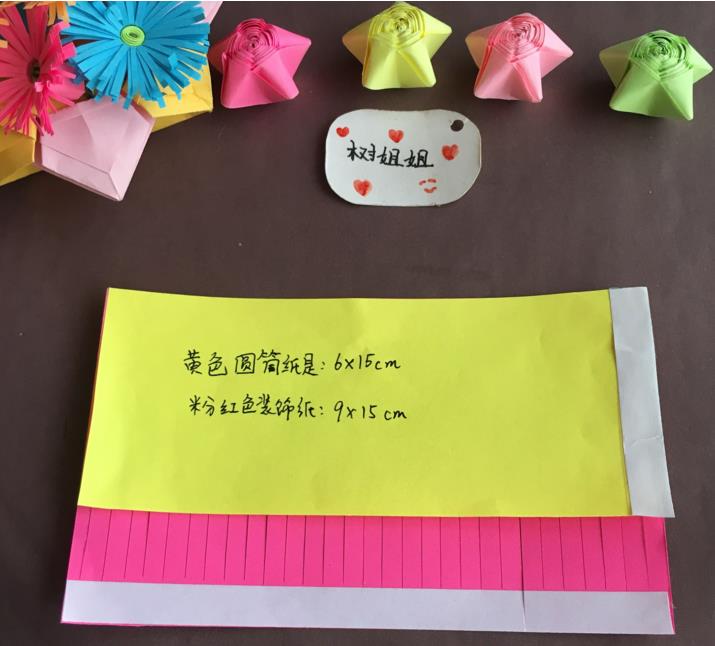 树姐姐
黄色圆筒纸是：6×15cm
粉红色装饰纸：9×15cm